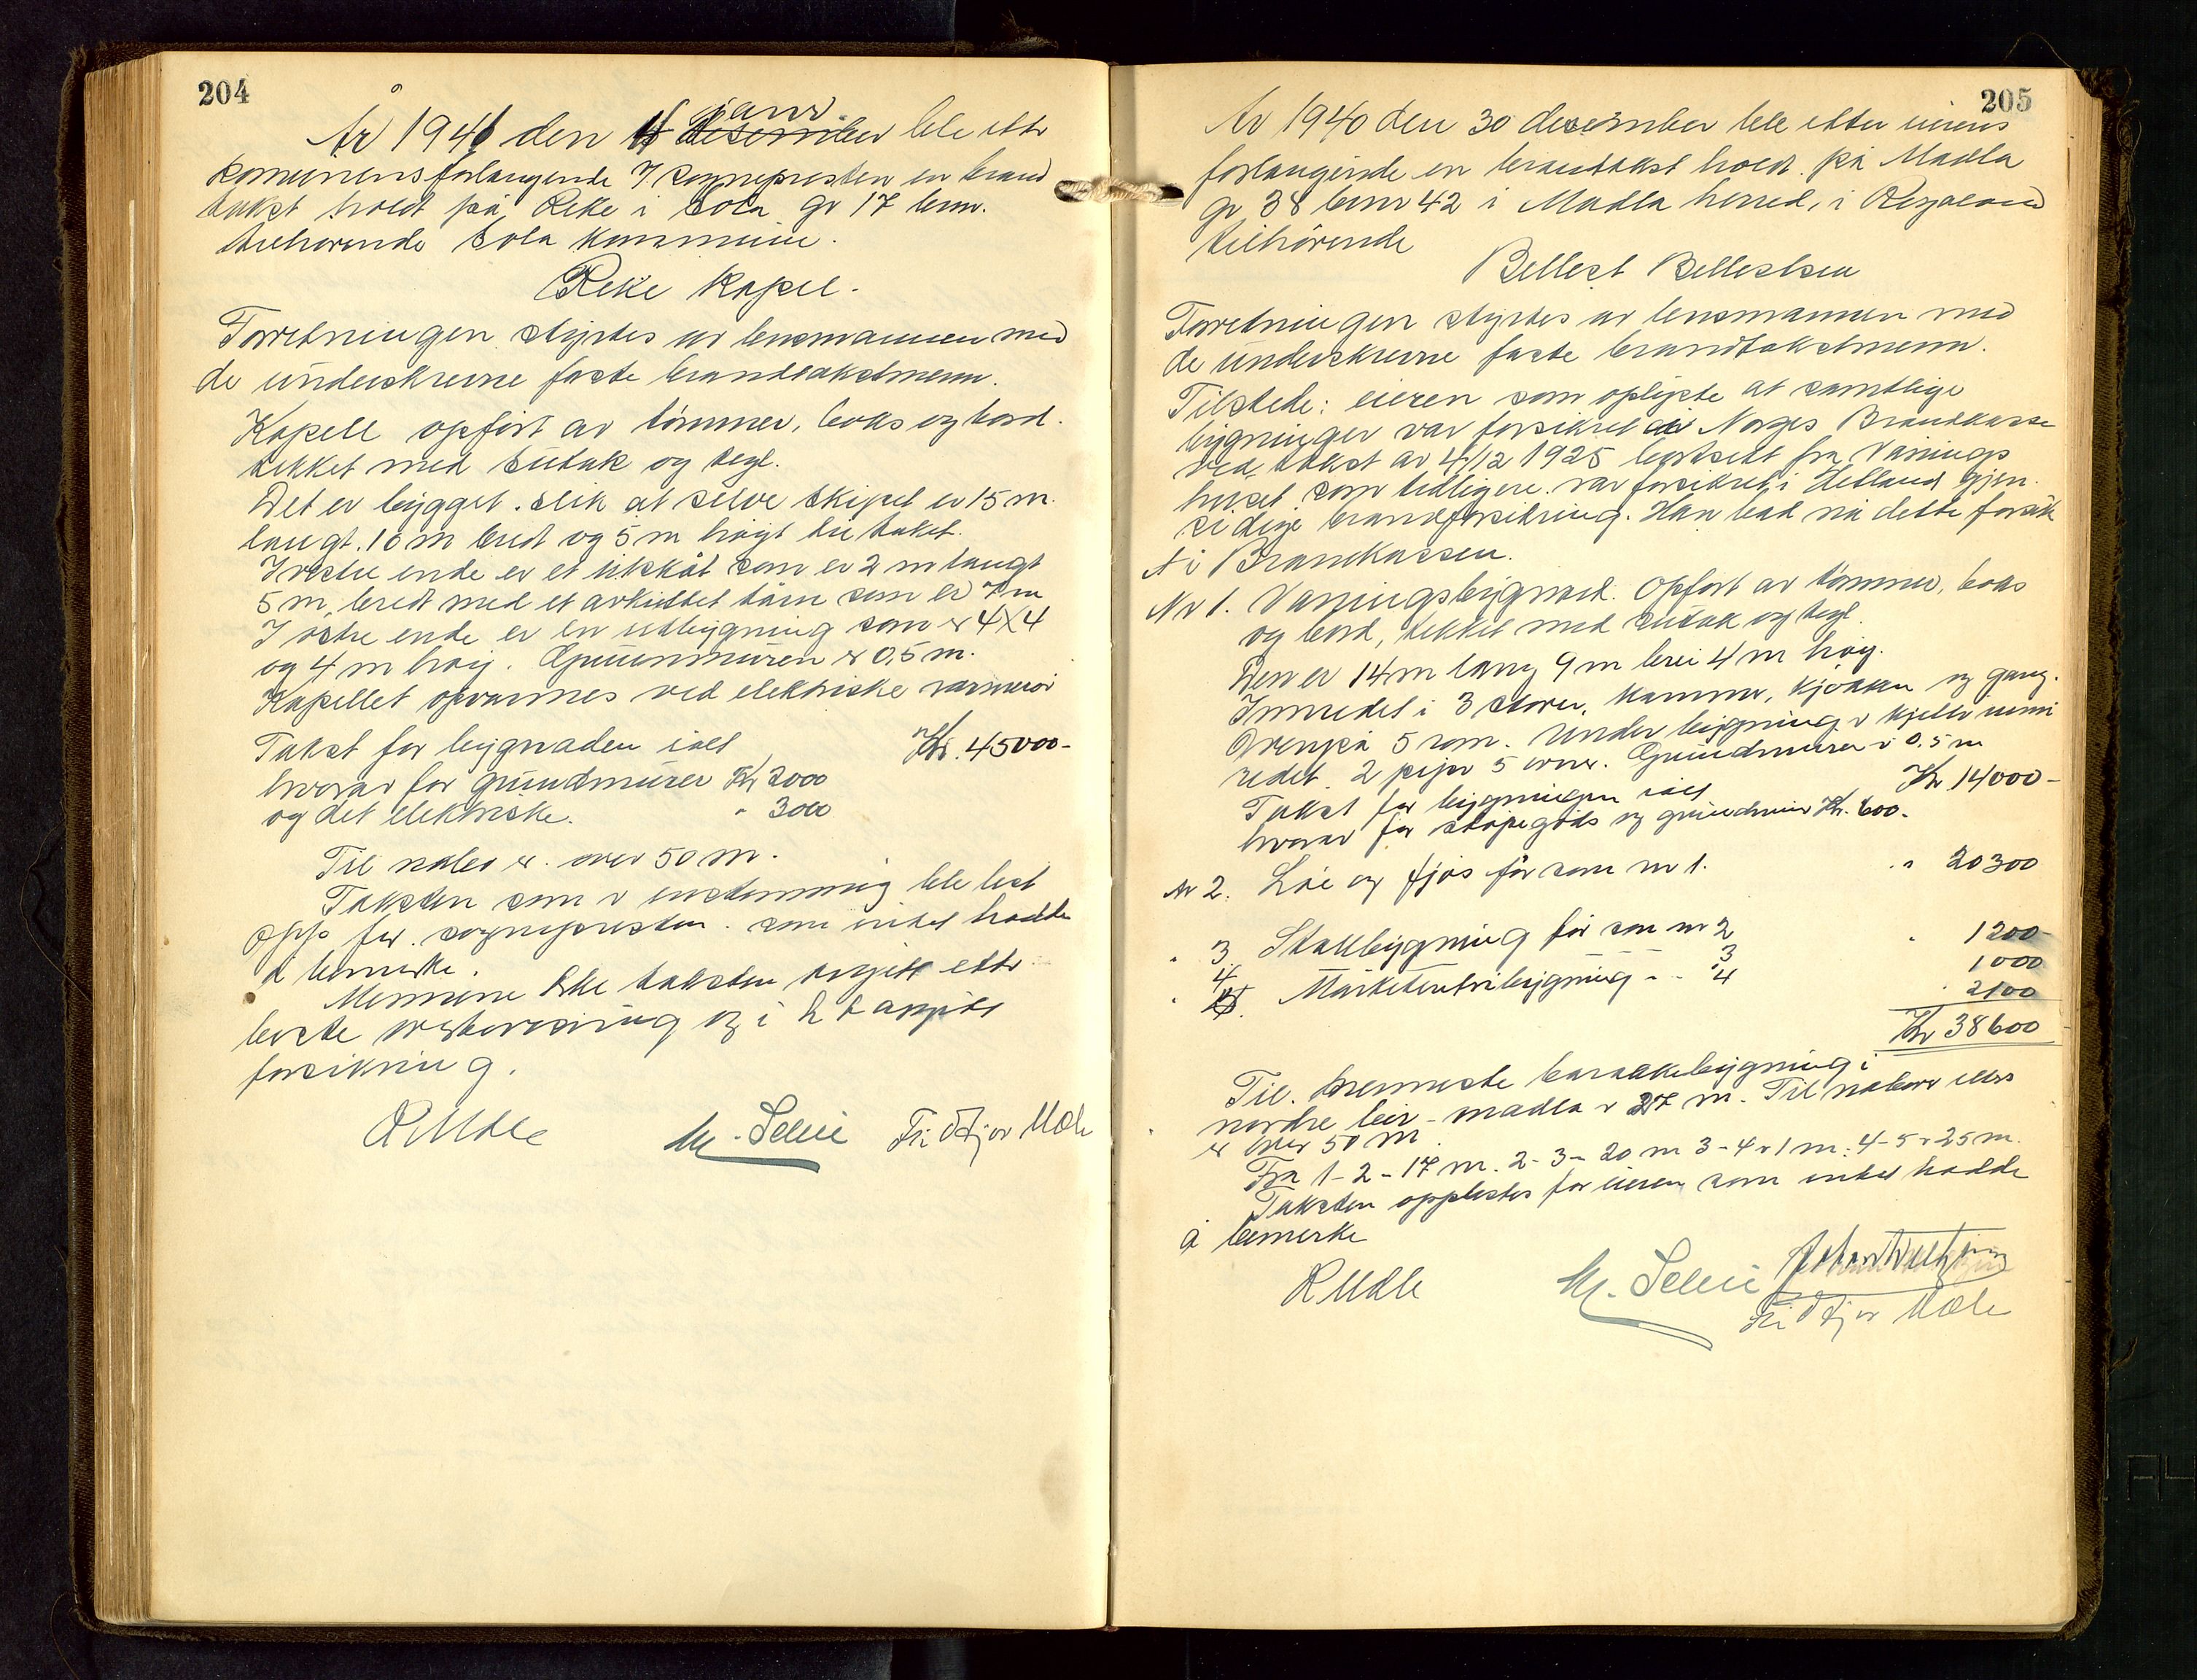 204
År 1941 den 4 janr. ble ettr
komunens forlangende / sogneprosten en brand
takst holdt på Reke i Sola gr 17 bnr.
tilhørende Sola kommune.
Reke Kapel.
Forretningen styrtes av lensmannen med
de underskrevne faste brandtakstmenn.
Kapell opført av tømmer, boks og bord.
tekket med sutak og tegl.
Det er bygget. slik at selve skipet er 15 m.
langt. 10 m bredt og 5 m høgt til taket.
I vestre ende er et utskåt som er 2 m langt
5 m, bredt med et avkuttet tårn som er 7 m
I østre ende er en utbygning som er 4X4
og 4 m høig. Grunnmuren er 0,5 m.
Kapellet opvarmes ved elektriske varmerør
Takst for bygnaden ialt Kr. 45000-
hvorav for grundmurer Kr 2000
og det elektriske. " 3000
Til nabo er over 50 m.
Taksten som er enstemmig ble lest
opp for. sogneprosten. som intet hadde
å bemerke.
Mennene ske taksten avgitt ettr
beste overbevisning og i h t avgitt
forsikring.
R Mæle M. Selvi Fridtjov Mæle
205
År 1940 den 30 desember ble etter eierens
forlangende en brantakst holdt. på Madla
gr 38 bnr 42 i Madla herred, i Rogaland
tilhörende
Bellest Bellestsen
Forretningen styrtes av lensmannen med
de underskrevne faste brandtakstmenn.
Tilstede: eieren som oplyste at samtlige
bygninger var forsikret i Norges Brandkasse
ved takst av 4/12 1925 bortsett fra Vånings
huset som tidligere var forsikret i Hetland gjen
sidige brandforsikring. Han bad nå dette forsik
et i Brandkassen.
Nr 1. Vaningsbygnad. Opført av tömmer, boks
og bord, tekket med sutak og tegl.
Den er 14 m lang 9 m brei 4 m høg.
Innredet i 3 stover, kammer, kjøkken og gang.
Ovenpå 5 rom. Under bygning er kjeller uinn
redet. 2 piper 5 ovner. Grundmuren er 0,5 m
Takst for bygningen ialt Kr 14000-
hvorav for støpegods og grundmur Kr. 600.
Nr 2. Løe og fjøs før som nr 1. " 20300
" 3 Stallbygning før som nr 2 " 1200-
4 3 1000
" 5. Marketentribygning " " 4 " 2100
Kr 38600
Til. brenneste barakkebygning i
nordre leir - madla er 27 m. Til naboer ellers
er over 50 m.
Fra 1-2 - 17 m. 2-3 - 20 m 3-4 er 1 m: 4-5 er 25 m.
Taksten opplestes for eieren som intet hadde
å bemerke
R Mæle M. Selvi
Fridtjov Mæle